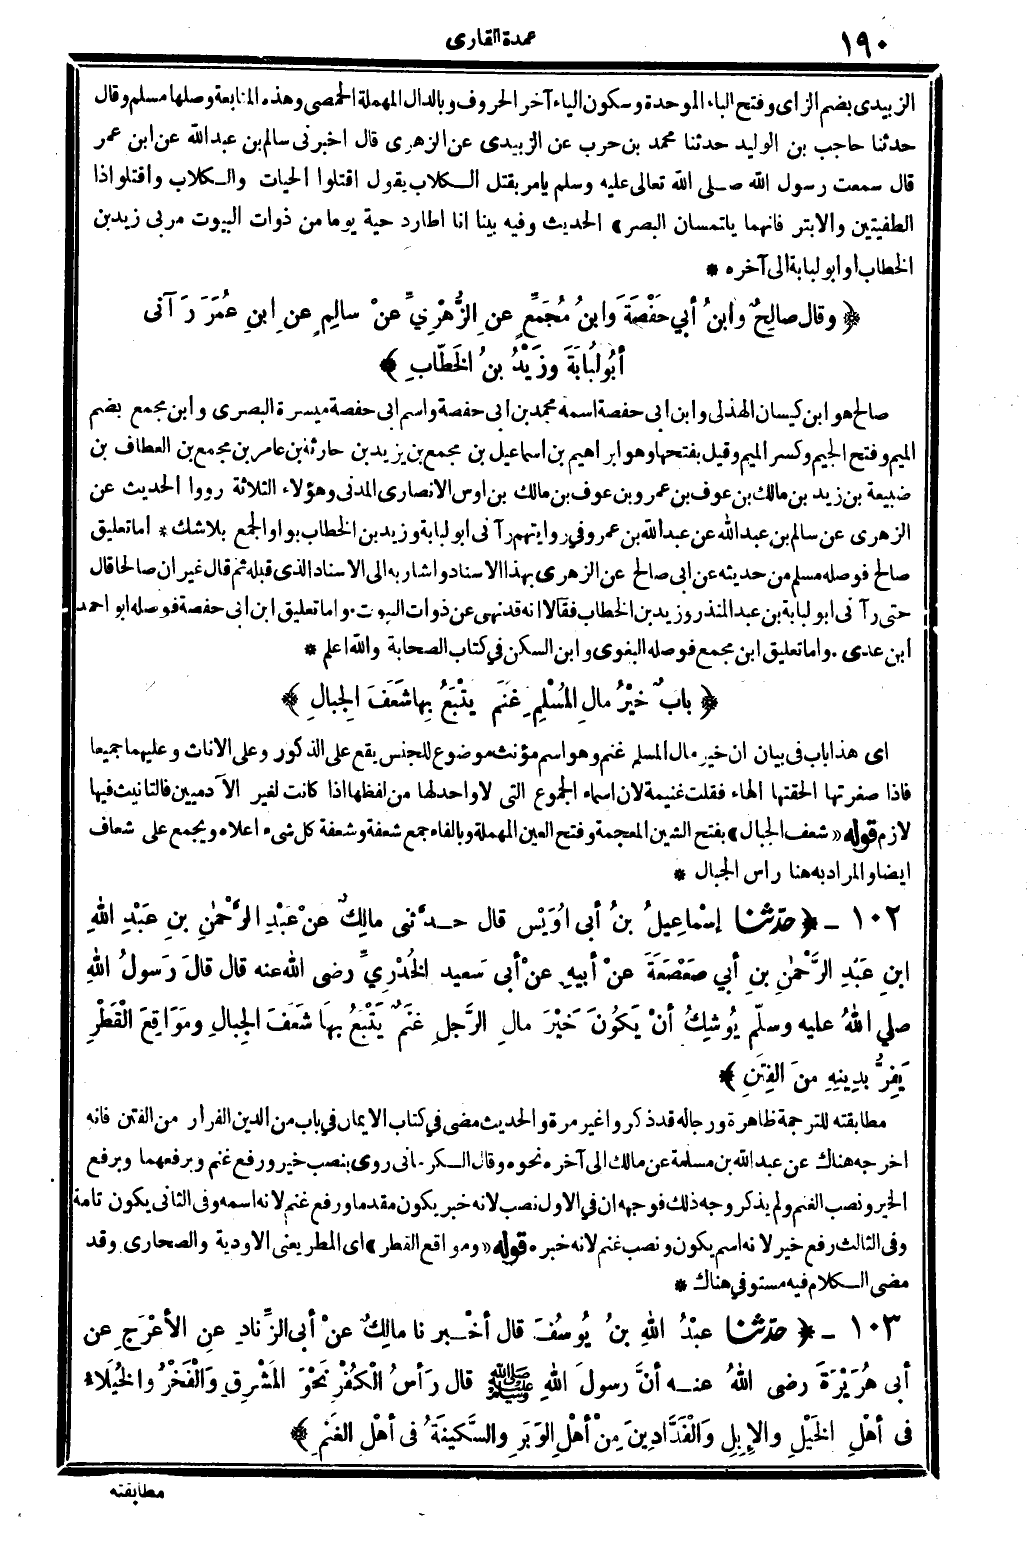 ١٩٠
عمدة القارى
الزبيدى بضم الزاى وفتح الباء الموحدة وسكون الياء آخر الحروف وبالدال المهملة الحمصى وهذه المتابعة وصلها مسلم وقال
حدثنا حاجب بن الوليد حدثنا محمد بن حرب عن الزبيدى عن الزهرى قال اخبرنى سالم بن عبدالله عن ابن عمر
قال سمعت رسول الله صلى الله تعالى عليه وسلم يامر بقتل الكلاب يقول اقتلوا الحيات والكلاب واقتلوا ذا
الطفيتين والابتر فانهما يلتمسان البصر» الحديث وفيه بينا انا اطارد حية يوما من ذوات البيوت مر بى زيد بن
الخطاب او ابو لبابة الى آخره *
﴿ وقال صالِحٌ وابنُ أبي حَفْصَةَ وَابنُ مُجَمِّعٍ عنِ الزُّهْرِيِّ عنْ سالِمٍ عنِ ابنِ عُمَرَ رَآنى
أبُو لُبَابَةَ وزَيْدُ بنُ الخَطَّابِ ﴾
صالح هو ابن كيسان الهذلى وابن ابى حفصة اسمه محمد بن ابى حفصة واسم ابى حفصة ميسرة البصرى وابن مجمع بضم
الميم وفتح الجيم وكسر الميم وقيل بفتحها وهو ابراهيم بن اسماعيل بن مجمع بن يزيد بن حارثة بن عامر بن مجمع بن العطاف بن
ضبيعة بن زيد بن مالك بن عوف بن عمرو بن عوف بن مالك بن اوس الانصارى المدنى وهؤلاء الثلاثة رووا الحديث عن
الزهرى عن سالم بن عبدالله عن عبدالله بن عمر وفي روايتهم رآنى ابو لبابة وزيد بن الخطاب بواو الجمع بلا شك * اما تعليق
صالح فوصله مسلم من حديثه عن ابى صالح عن الزهرى بهذا الاسناد واشار به الى الاسناد الذى قبله ثم قال غير ان صالحا قال
حتى رآنى ابو لبابة بن عبد المنذر وزيد بن الخطاب فقالا انه قد نهى عن ذوات البيوت. واما تعليق ابن ابى حفصة فوصله ابو احمد
ابن عدى. واما تعليق ابن مجمع فوصله البغوى وابن السكن في كتاب الصحابة والله اعلم *
﴿ بابٌ خَيْرُ مالِ المُسْلِمِ غَنَمٌ يَتْبَعُ بِها شَعَفَ الجِبالِ ﴾
اى هذا باب فى بيان ان خير مال المسلم غنم وهو اسم مؤنث موضوع للجنس يقع على الذكور وعلى الاناث وعليهما جميعا
فاذا صغرتها الحقتها الهاء فقلت غنيمة لان اسماء الجموع التى لا واحد لها من لفظها اذا كانت لغير الآدميين فالتانيث فيها
لازم قوله «شعف الجبال» بفتح الشين المعجمة وفتح العين المهملة وبالفاء جمع شعفة وشعفة كل شىء اعلاه ويجمع على شعاف
ايضا والمراد به هنا راس الجبال *
١٠٢ ـ ﴿ حدّثنا إسْماعِيلُ بنُ أبى أُوَيْس قال حدّثنى مالِكٌ عنْ عَبْدِ الرَّحْمٰنِ بنِ عَبْدِ اللهِ
ابنِ عَبْدِ الرَّحْمٰنِ بنِ أبي صَعْصَعَةَ عنْ أبيهِ عنْ أبى سَعيد الخُدْرِيِّ رضى الله عنه قال قالَ رَسولُ اللهِ
صلي اللهُ عليه وسلّم يُوشِكُ أنْ يَكُونَ خَيْرَ مالِ الرَّجلِ غَنَمٌ يَتْبَعُ بِهَا شَعَفَ الجِبالِ ومَوَاقِعَ القَطْرِ
يَفِرُّ بِدِينِهِ منَ الفِتَنِ ﴾
مطابقته للترجمة ظاهرة ورجاله قد ذكروا غير مرة والحديث مضى في كتاب الايمان في باب من الدين الفرار من الفتن فانه
اخرجه هناك عن عبدالله بن مسلمة عن مالك الى آخره نحوه وقال الكرمانى روى بنصب خير ورفع غنم وبرفعهما وبرفع
الخير ونصب الغنم ولم يذكر وجه ذلك فوجهه ان في الاول نصب لانه خبر يكون مقدما ورفع غنم لانه اسمه وفى الثانى يكون تامة
وفى الثالث رفع خير لانه اسم يكون ونصب غنم لانه خبره قوله «ومواقع القطر» اى المطر يعنى الاودية والصحارى وقد
مضى الكلام فيه مستوفي هناك *
١٠٣ ـ ﴿ حدّثنا عبْدُ اللهِ بنُ يُوسُفَ قال أخْبرنا مالِكٌ عنْ أبى الزِّنادِ عنِ الأعْرَجِ عن
أبى هُرَيْرَةَ رضى اللهُ عنه أنَّ رسولَ اللهِ ﷺ قال رَأسُ الْكُفْرِ نَحْوَ المَشْرِقِ وَالْفَخْرُ والخُيَلاءُ
فى أهْلِ الخَيْلِ والإِبِلِ وَالْفَدَّادِينَ مِنْ أهْلِ الوَبَرِ والسَّكينَةُ فى أهْلِ الغَنَمِ ﴾
مطابقته